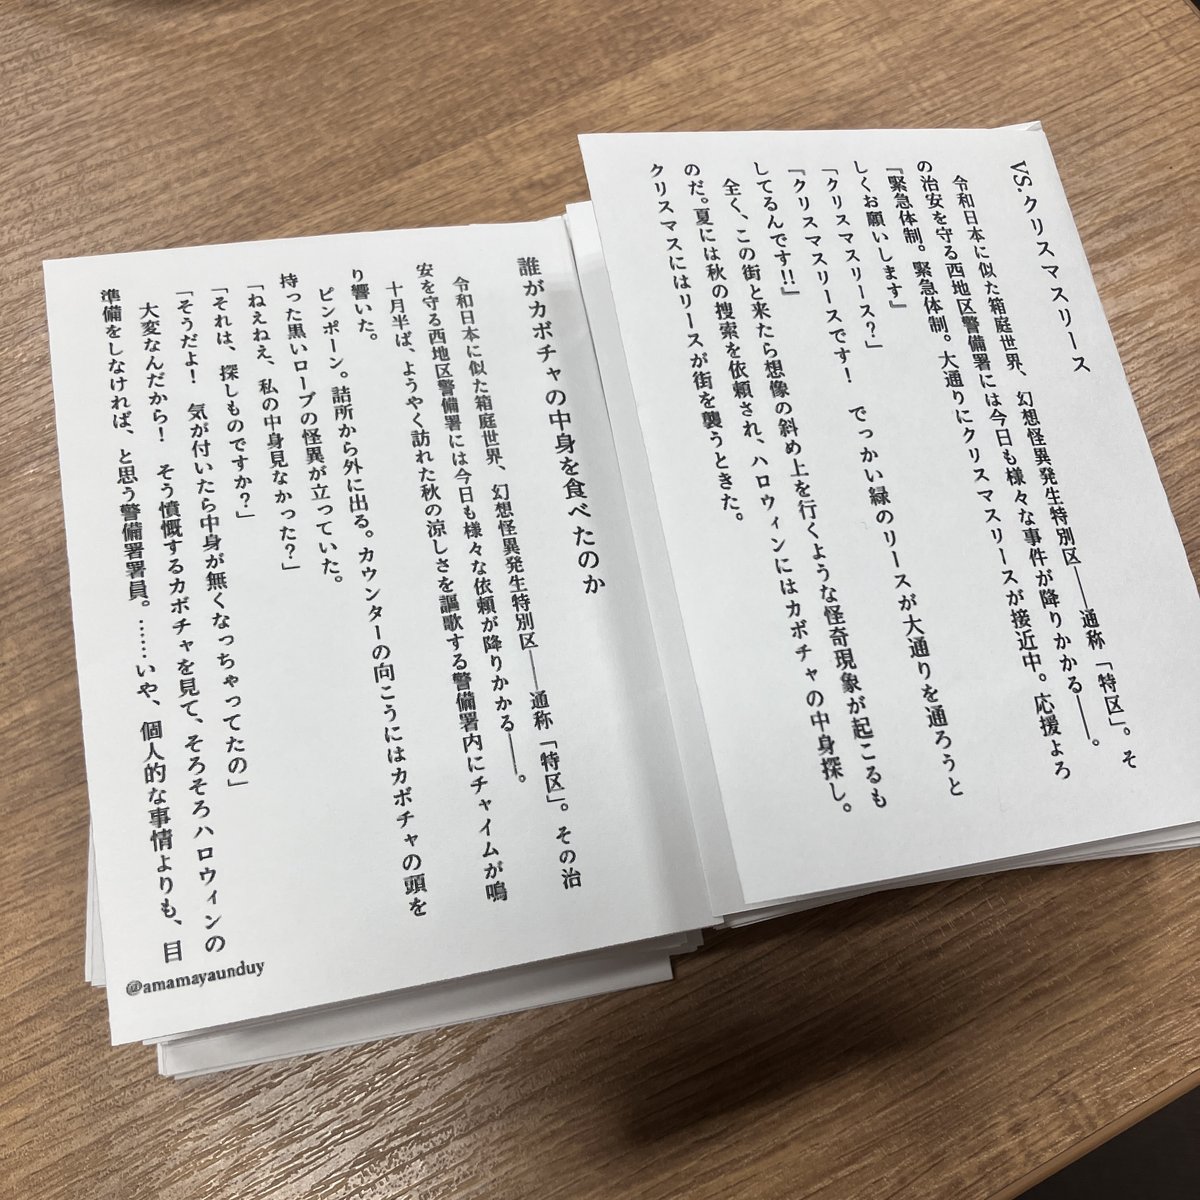 VS.クリスマスリース
令和日本に似た箱庭世界、幻想怪異発生特別区――通称「特区」。そ
の治安を守る西地区警備署には今日も様々な事件が降りかかる――。
『緊急体制。緊急体制。大通りにクリスマスリースが接近中。応援よろ
しくお願いします』
「クリスマスリース？」
『クリスマスリースです！　でっかい緑のリースが大通りを通ろうと
してるんです!!』
全く、この街と来たら想像の斜め上を行くような怪奇現象が起こるも
のだ。夏には秋の捜索を依頼され、ハロウィンにはカボチャの中身探し。
クリスマスにはリースが街を襲うときた。
誰がカボチャの中身を食べたのか
令和日本に似た箱庭世界、幻想怪異発生特別区――通称「特区」。その治
安を守る西地区警備署には今日も様々な依頼が降りかかる――。
十月半ば、ようやく訪れた秋の涼しさを謳歌する警備署内にチャイムが鳴
り響いた。
ピンポーン。詰所から外に出る。カウンターの向こうにはカボチャの頭を
持った黒いローブの怪異が立っていた。
「ねえねえ、私の中身見なかった？」
「それは、探しものですか？」
「そうだよ！　気が付いたら中身が無くなっちゃってたの」
大変なんだから！　そう憤慨するカボチャを見て、そろそろハロウィンの
準備をしなければ、と思う警備署署員。……いや、個人的な事情よりも、目
@amamayaunduy